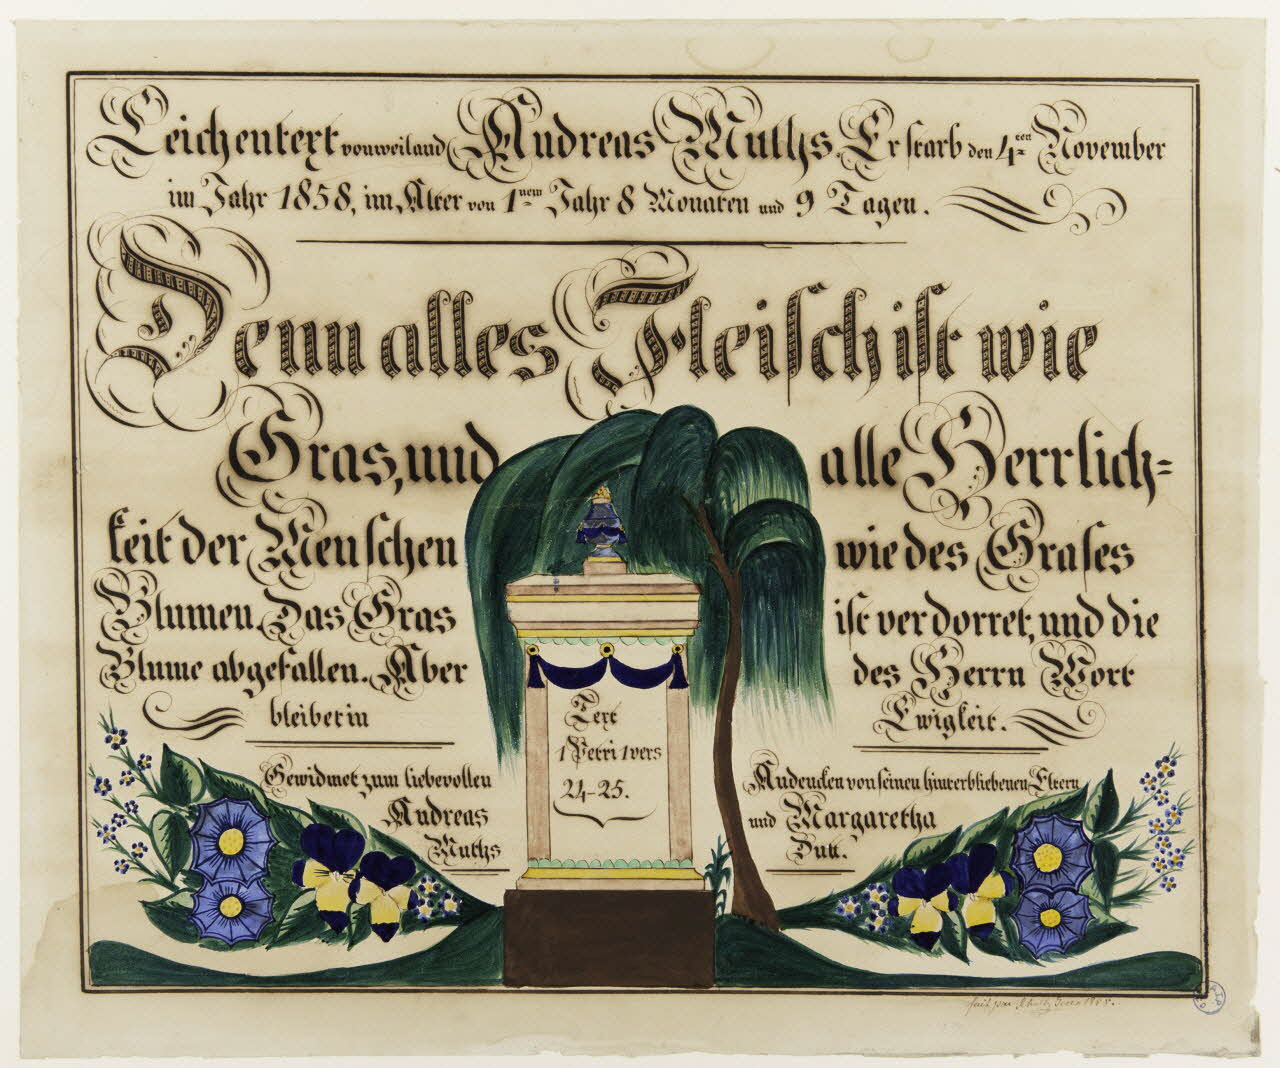 Leichentext von weiland Andreas Muths. Er starb den 4ten November
im Jahr 1858, im Alter von 1nem Jahr 8 Monaten und 9 Tagen.
Denn alles Fleisch ist wie
Gras, und alle Herrlich=
keit der Menschen wie des Grases
Blumen. Das Gras ist verdorret, und die
Blume abgefallen. Aber des Herrn Wort
bleibet in Ewigkeit.
Gewidmet zum liebevollen Andencken von seinen hinterbliebenen Eltern
Andreas und Margaretha
Muths Dutt.
Text
1 Petri 1 vers
24-25.
fait par